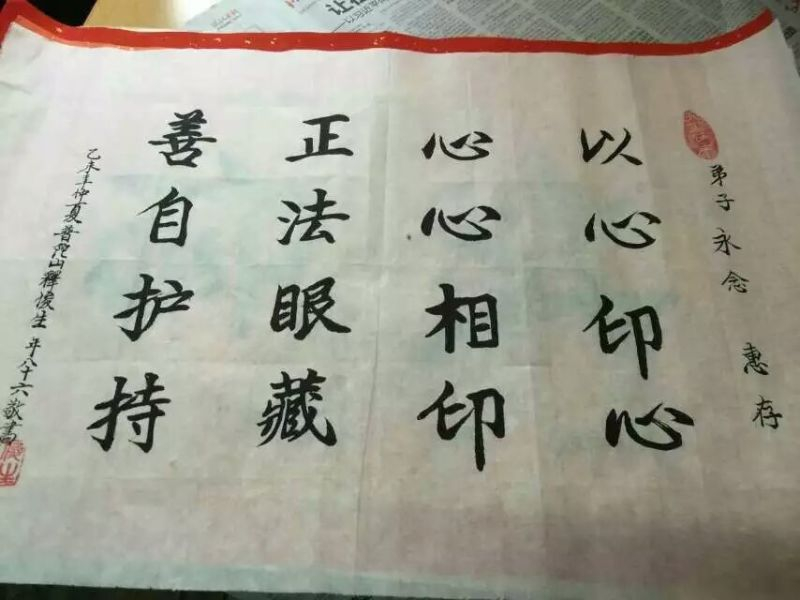 弟子永念 惠存
以心印心
心心相印
正法眼藏
善自护持
乙未年仲夏普陀山释悛生年八十六敬書